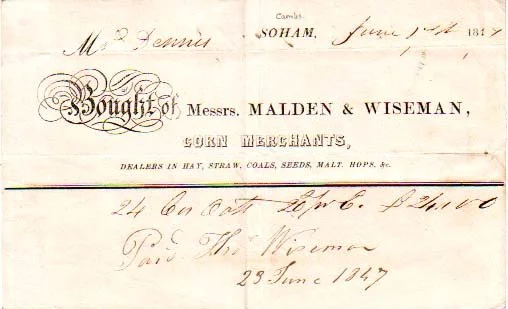 Cambs.
Mrs Dennis SOHAM, June 1847
Bought of Messrs. MALDEN & WISEMAN,
CORN MERCHANTS,
DEALERS IN HAY, STRAW, COALS, SEEDS, MALT, HOPS, &c.
24
Paid Thos Wiseman
23 June 1847